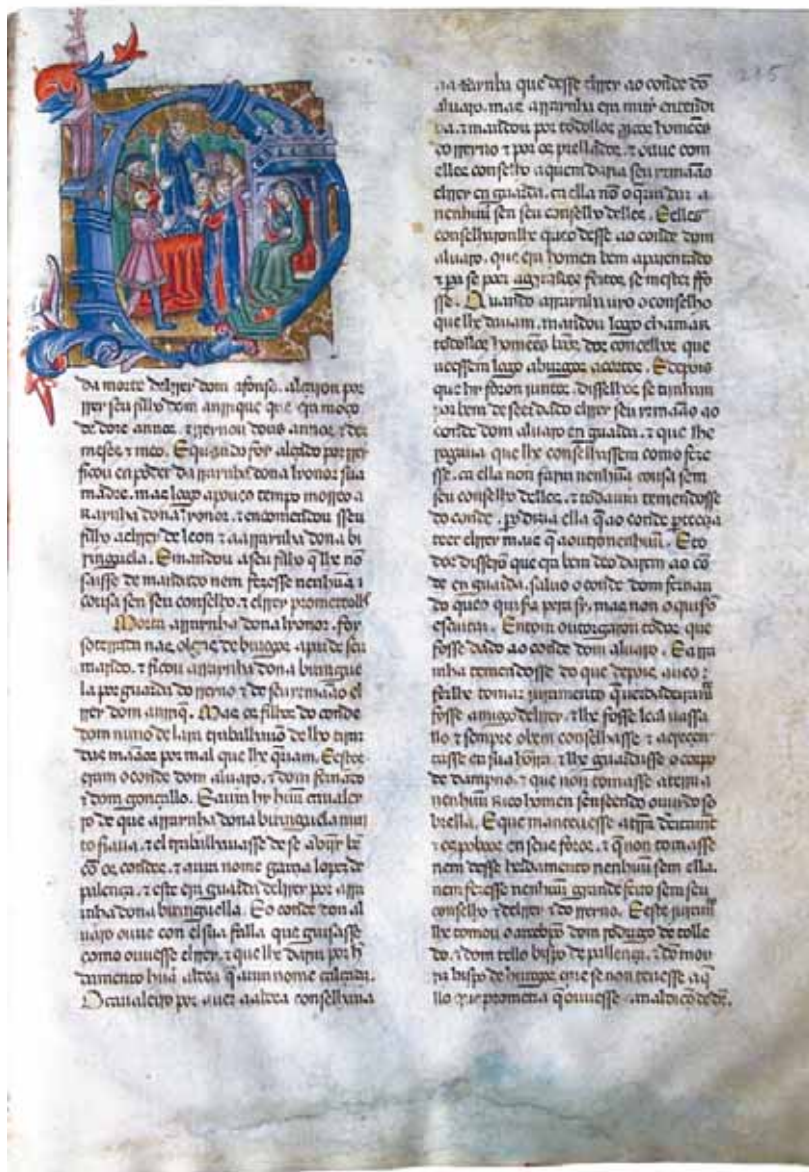 da morte delrrey dom afonso. alçaron por
rrey seu filho dom anrrique que era moço
de doze annos. ⁊ rreynou dous annos ⁊ dez
meses ⁊ meo. E quando foy alçado por rrey
ficou en poder da rraynha dona lyonor sua
madre. mas logo a pouco tempo morreo a
Raynha dona lyonor. ⁊ encomendou sseu
filho a elrrey de leon ⁊ aa rraynha dona bi
ringuela. E mandou a seu filho q̃ lhe nõ
saisse de mandado nem fezesse nenhũa
cousa sen seu conselho. ⁊ elrrey prometeolh
Morta a rraynha dona lyonor. foy
soterrada nas olgas de burgos a par de seu
marido. ⁊ ficou a rraynha dona biringue
la por guarda do rreyno ⁊ de seu rmaão el
rrey dom anrriq̃. Mas os filhos do conde
dom nuno de lara trabalharõ de lho tirar
das mãaos por mal que lhe queriam. E estes
eram o conde dom aluaro. ⁊ dom fernãdo
⁊ dom gonçallo. E auia hy huũ caualey
ro de que a rraynha dona biringuela mui
to fiaua. ⁊ el trabalhauasse de se auijr bẽ
cõ os condes. ⁊ auia nome garcia lopez de
palença. ⁊ este era guarda delrrey por a rray
nha dona biringuella. E o conde don al
uaro ouue con el sua falla que guisasse
como ouuesse elrrey. ⁊ que lhe daria por h
damento hũa aldea q̃ auia nome
O caualeyro por auer a aldea conselhaua
aa rraynha que desse elrrey ao conde dõ
aluaro. mas a rraynha era muy entendi
da. ⁊ mandou por todollos rricos homẽes
do rreyno ⁊ por os prellados. ⁊ ouue com
elles conselho a quem daria seu yrmaão
elrrey en guarda. ca ella nõ o queria dar a
nenhuũ sen seu conselho delles. E elles
conselharonlhe que o desse ao conde dom
aluaro. que era homen bem aparentado
⁊ pa se parar a grandes feitos se mester ffo
sse. Quando a rraynha uio o conselho
que lhe dauam. mandou logo chamar
todollos homẽes boõs dos concelhos que
ueessem logo a burgos a cortes. E depois
que hy foron juntos. disselhes se tinham
por bem de seer dado elrrey seu yrmaão ao
conde dom aluaro en guarda. ⁊ que lhe
rogaua que lhe conselhassem como feze
sse. ca ella non faria nenhũa cousa sem
seu conselho delles. ⁊ todauia temendosse
do conde. pero dizia ella q̃ ao conde perteecia
teer elrrey mais q̃ a outro nenhuũ. E to
dos disserõ que era bem de o darem ao cõ
de en guarda. saluo o conde dom fernan
do que o queria pera sy. mas non o quiserõ
escuitar. Entom outorgaron todos que
fosse dado ao conde dom aluaro. E a rra
nha temendosse do que depois aueo.
fezlhe tomar juramento q̃ uerdadeiramẽte
fosse amigo delrrey. ⁊ lhe fosse leal uassa
llo ⁊ sempre o bem conselhasse ⁊ acrecen
tasse en sua hõrra. ⁊ lhe guardasse o corpo
de dampno. ⁊ que non tomasse a terra a
nenhuũ rrico homen sen seendo ouuido so
brella. E que manteuesse a terra dereitamẽte
⁊ os poboos en seus foros. ⁊ q̃ non tomasse
nem desse herdamento nenhuũ sem ella.
nem fezesse nenhuũ grande feito sem seu
conselho ⁊ delrrey ⁊ do rreyno. E este juramẽto
lhe tomou o arcebispo dom rodrigo de tolle
do. ⁊ dom tello bispo de pallença. ⁊ dõ mou
riz bispo de burgos que se non teuesse aq̃
llo que prometia q̃ ouuesse a maldiçõ de ds̃.